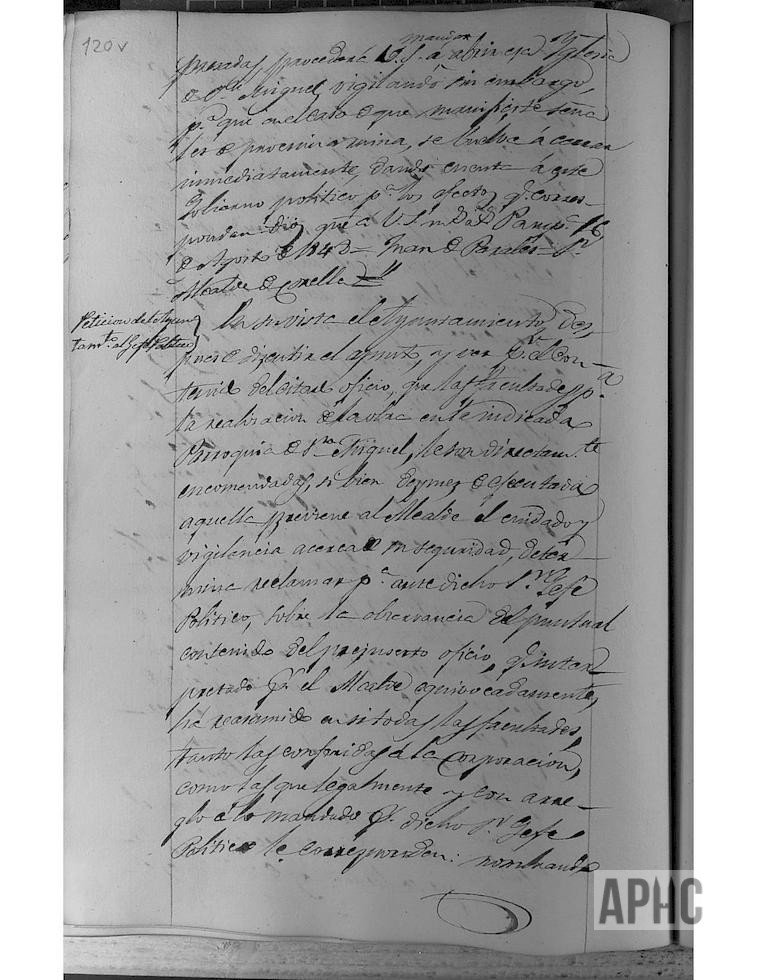 120v
mandar
paradas, procederá V.S. á abrir esa Yglesia
de Sn Miguel, vigilando sin embargo,
pa. que en el caso de que manifieste seña
les de proxima ruina, se buelva á cerrar
inmediatamente, dando cuenta á este
Gobierno politico pa. los efectos q. corres-
pondan. Dios gue á V.S. ms. as. Pampa. 16
de Agosto de 1843 = Sr.
Alcalde de Corella =
Peticion del Ayun
tamto. al Gefe Politico
En su vista el Ayuntamiento, des
pues de discutir el asunto, y ver pr. el con-
tenido del citado oficio, que las facultades pa.
la realizacion de la obra en la indicada
Parroquia de Sn Miguel, le son directamte.
encomendadas, si bien despues de ejecutada
aquella previene al Alcalde el cuidado y
vigilancia acerca de su seguridad, deter
mina reclamar pa. ante dicho Sr. Gefe
Politico, sobre la observancia del puntual
contenido del preinserto oficio, q. inter
pretado pr. el Alcalde equivocadamente,
ha reasumido en si todas las facultades,
tanto las conferidas á la Corporacion,
como las que legalmente y con arre-
glo á lo mandado pr. dicho Sr. Gefe
Politico le corresponden: nombrando
APHC